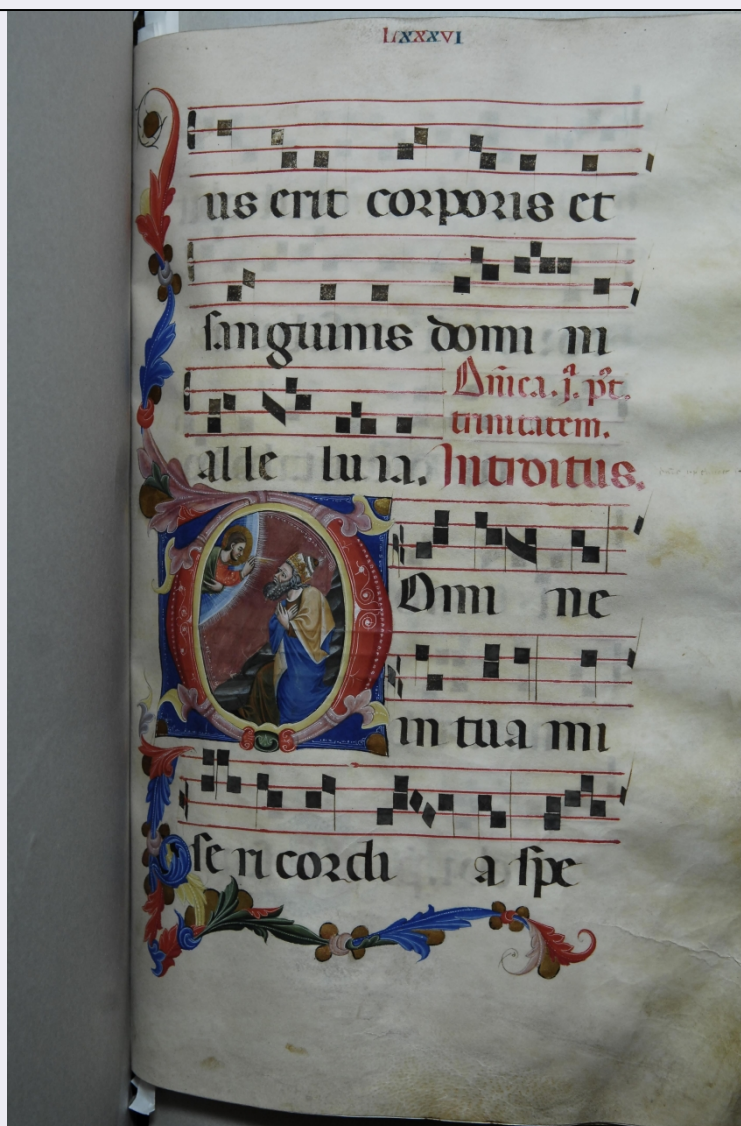 LXXXVI
us erit corporis et
sanguinis domi ni
alle luia. Dñica .j. pt̃.
trinitatem.
Introitus.
Domi ne
in tua mi
se ri cordi a spe